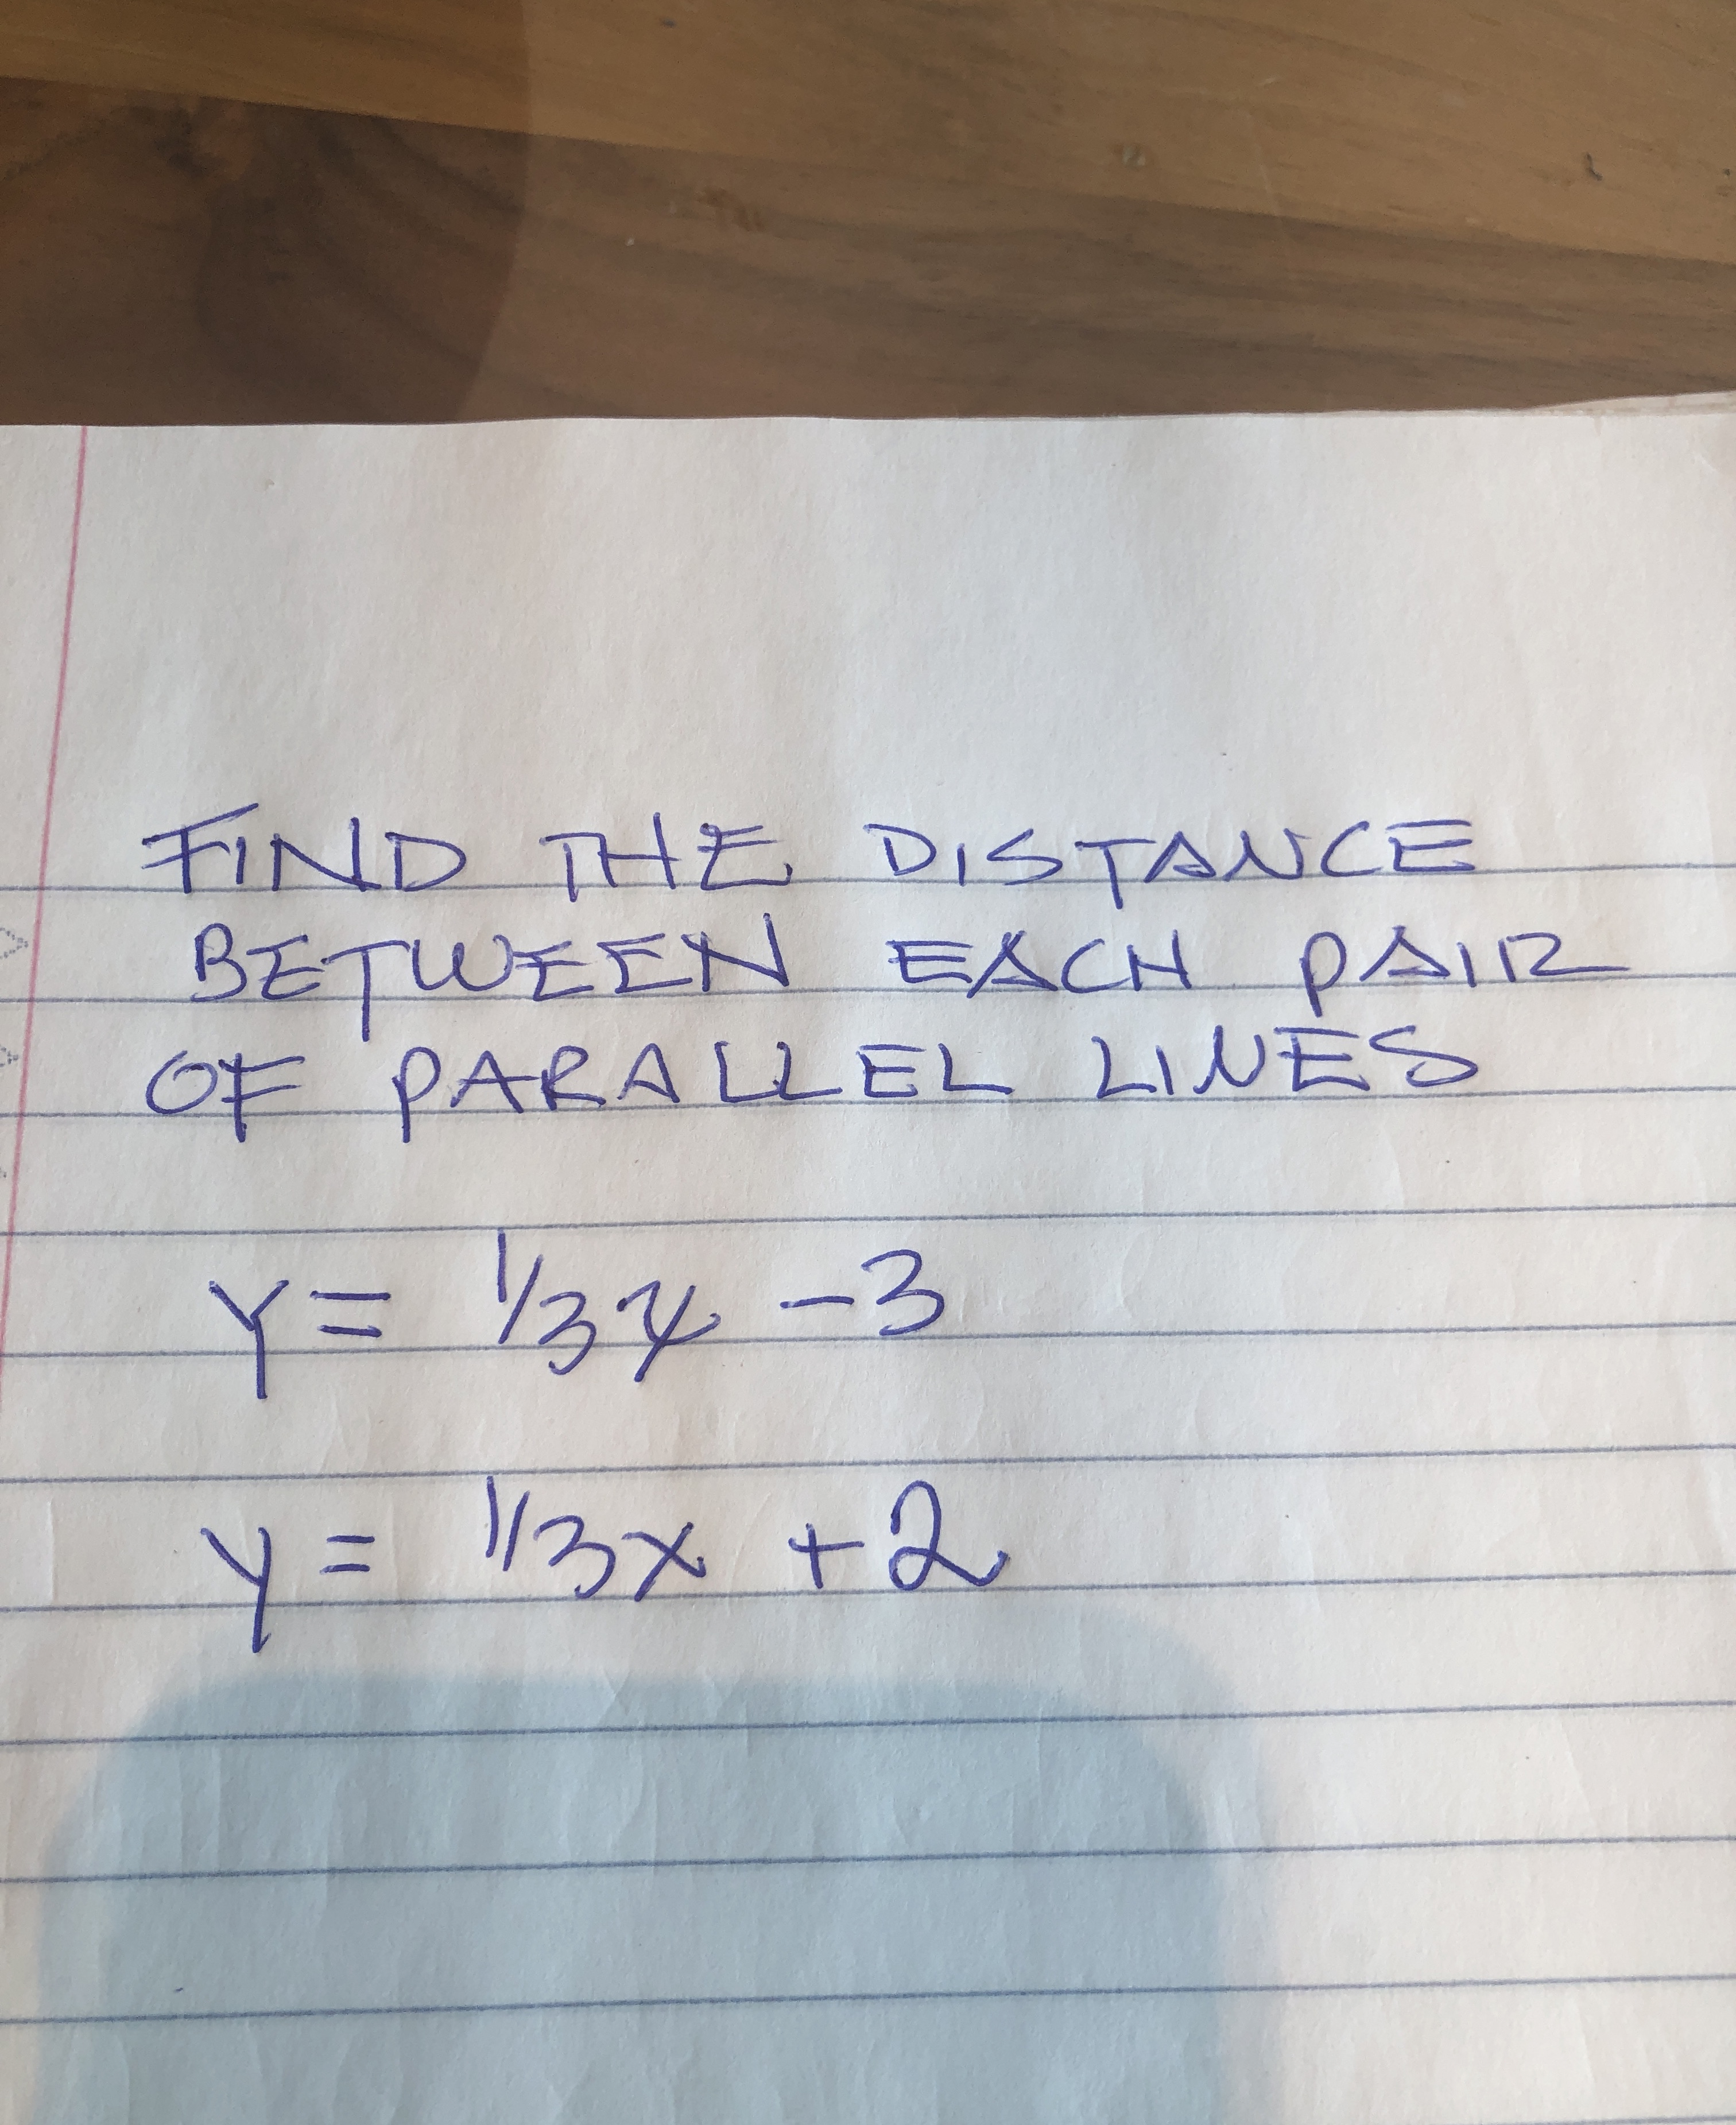 FIND THE DISTANCE
BETWEEN EACH PAIR
OF PARALLEL LINES
Y = 1/3x - 3
y = 1/3x + 2